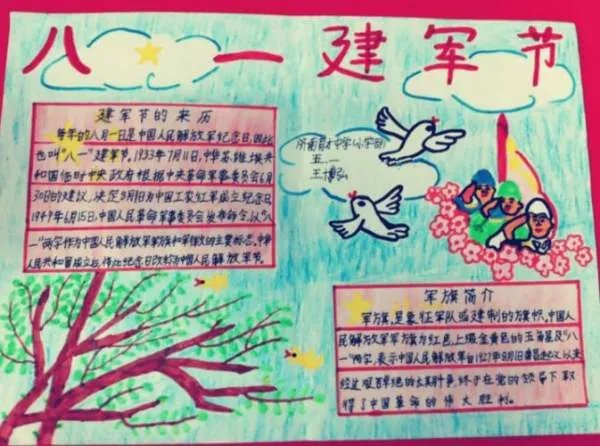 八一建军节
建军节的来历
每年的八月一日是中国人民解放军纪念日,因此
也叫“八一”建军节。1933年7月11日,中华苏维埃共
和国临时中央政府根据中央革命军事委员会6月
30日的建议,决定8月1日为中国工农红军成立纪念日
1949年6月15日,中国人民革命军事委员会发布命令,以“八
一”两字作为中国人民解放军军旗和军徽的主要标志。中华
人民共和国成立后,将此纪念日改称为中国人民解放军建军节。
济南育才中学(小学部)
五一
王博弘
军旗简介
军旗,是象征军队或建制的旗帜,中国人
民解放军军旗为红色,上缀金黄色的五角星及“八
一”两字,表示中国人民解放军自1927年8月1日南昌起义以来
经过艰苦卓绝的长期斗争,终于在党的领导下取
得了中国革命的伟大胜利。